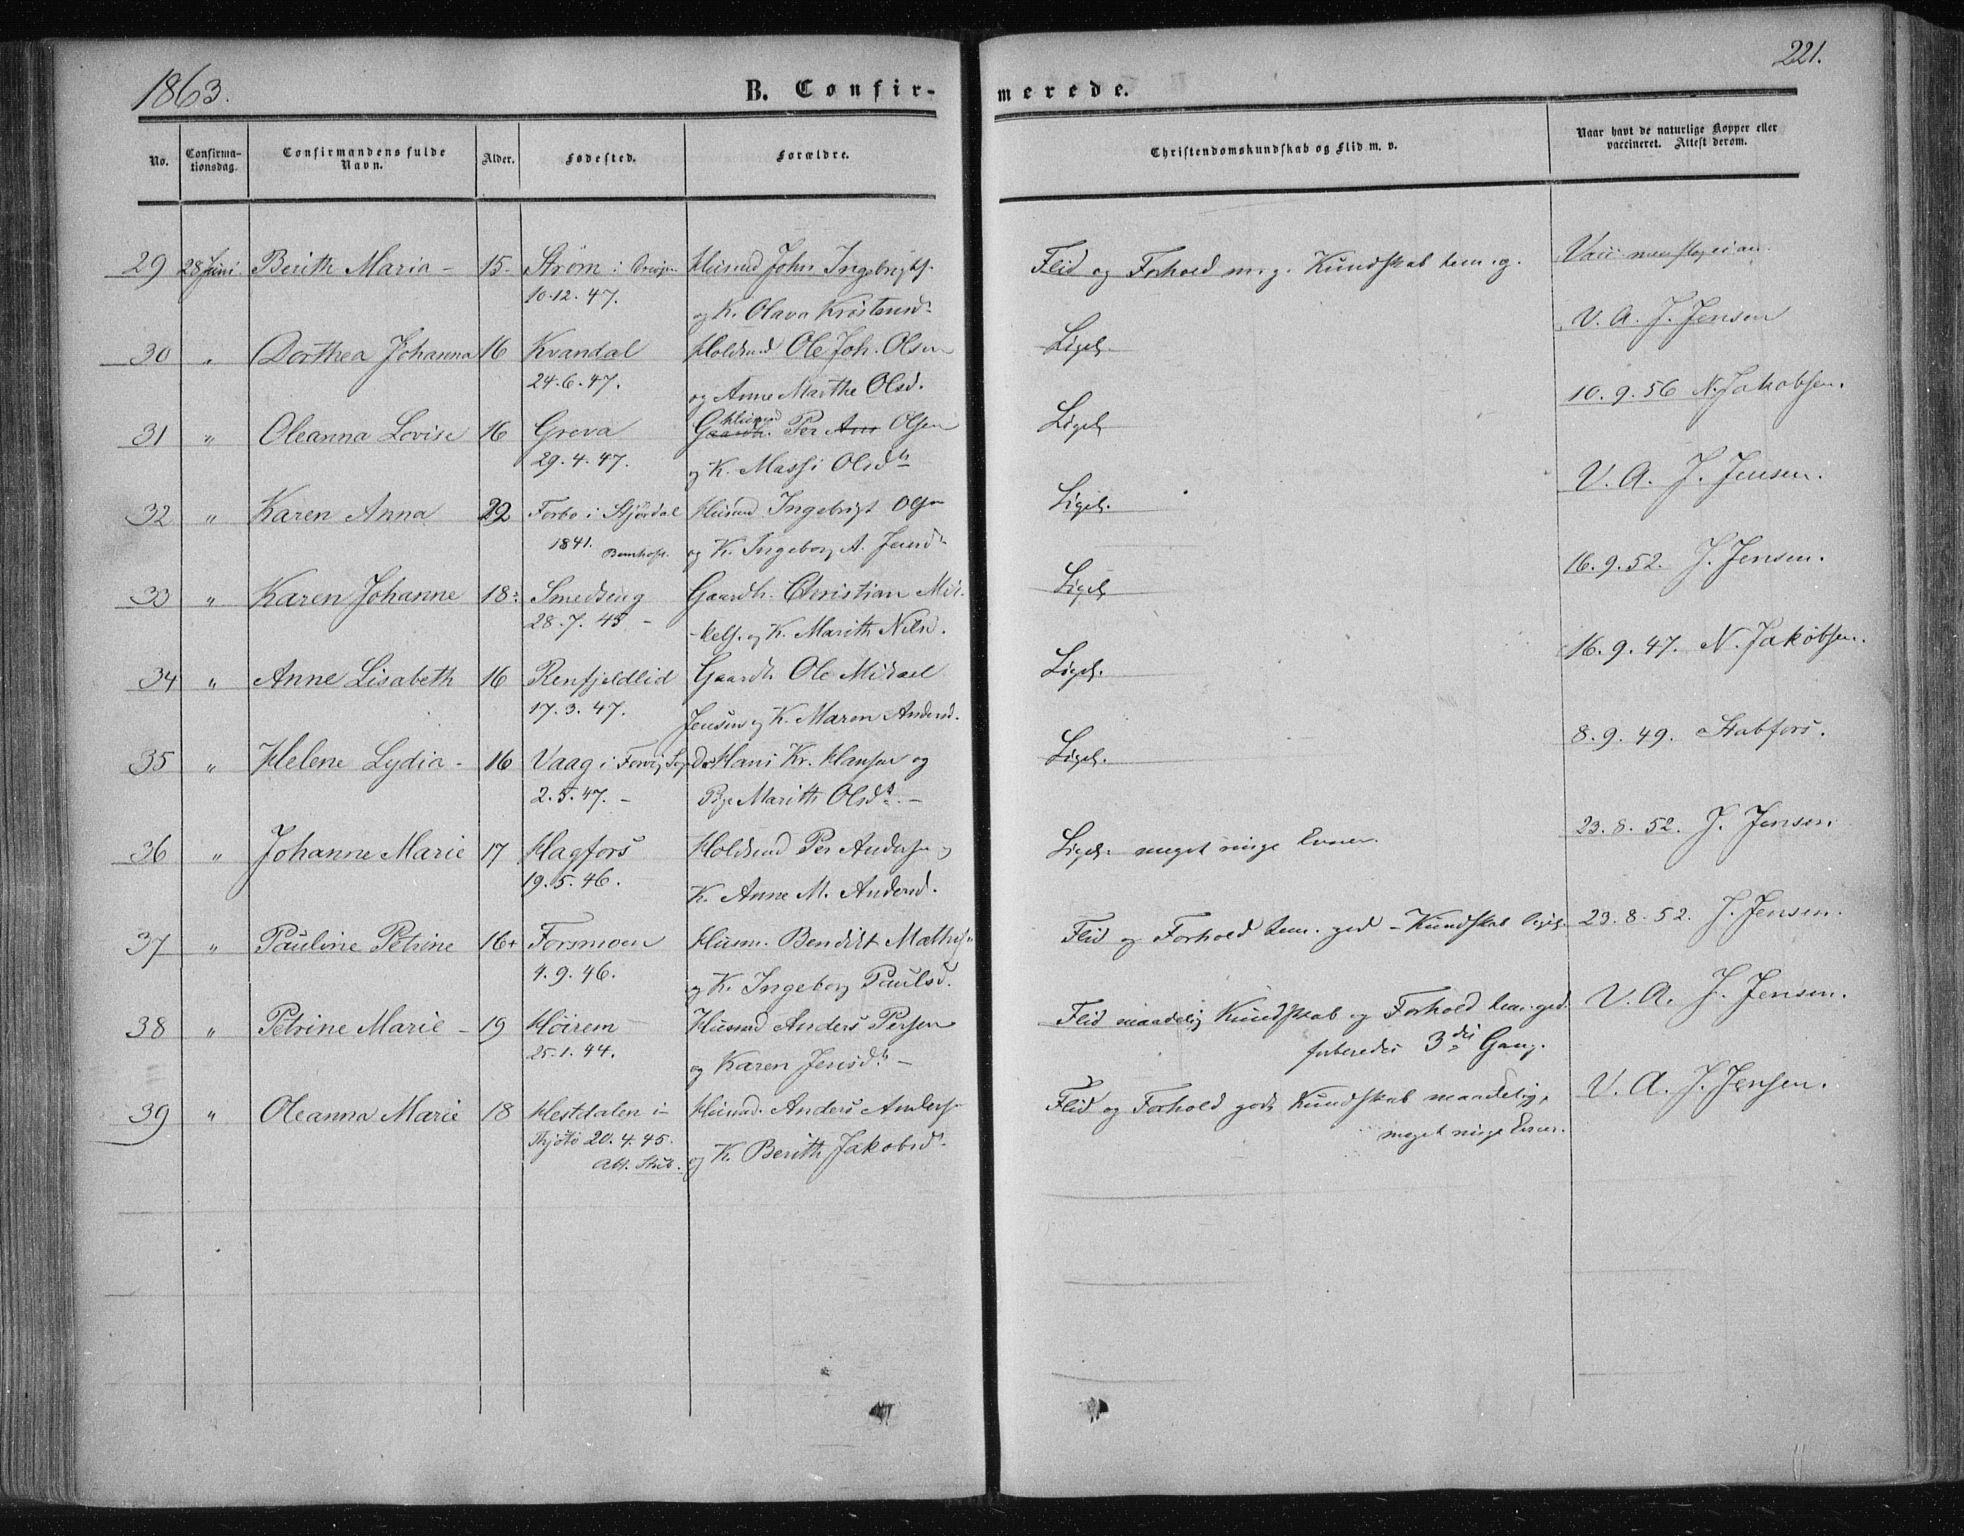 1863.
B. Confir-
merede.
221.
No.
Confirma-
tionsdag.
Confirmandens fulde
Navn.
Alder.
Fødested.
Forældre.
Christendomskundskab og Flid m. v.
Naar havt de naturlige Kopper eller
vaccineret. Attest derom.
29 28 Juni Berith Maria - 15- Strøm i Husmd John Ingebrigts. Flid og Forhold m. g. Kundskab tem. g.
10.12.47. og K. Olava Kristensd.
V. A. J. Jensen
30 " Dorthea Johanna 16 Kvandal Holdsmd Ole Joh. Olsen Ligel.
24.6.47. og Anne Marthe Olsd.
10.9.56 N. Jakobsen.
31 " Oleanna Lovise 16 Greva Gaardb. Husmd Per Olsen Ligel.
29.4.47. og K. Massi Olsdt
V. A. J. Jensen.
32 " Karen Anna 22 Forbo i Stjørdal Husmd Ingebrigt Olsen Ligel.
1841. og K. Ingeborg A. Jensd.
16.9.52. J. Jensen.
33 " Karen Johanne 18 Smedseng Gaardb. Christian Mik- Ligel.
28.7.45 - -kels. og K. Marith Nilsd.
16.9.47. N. Jakobsen.
34 " Anne Lisabeth 16 Renfjeldlid Gaardb. Ole Mikael Ligel.
17.3.47. Jensen og K. Maren Andersd.
8.9.49. Stabfors.
35 " Helene Lydia - 16 Vaag i Hans Kr. Hansen og Ligel.
2.5.47. - Pige Marith Olsdt. -
23.8.52. J. Jensen.
36 " Johanne Marie 17 Hagfors Holdsmd Per Andersen og Ligel. meget ringe Evner.
19.5.46. K. Anne M. Andersd.
23.8.52. J. Jensen.
37 " Pauline Petrine 16+ Forsmoen Husm. Bendikt Mathis. Flid og Forhold tem. god - Kundskab ligel.
4.9.46. og K. Ingeborg Paulsd.
V. A. J. Jensen.
38 " Petrine Marie - 19 Høirem Husmd Anders Persen Flid maadelig Kundskab og Forhold tem. god.
25.1.44. og Karen Jensdt. - forberedes 3die Gang.
V. A. J. Jensen.
39 " Oleanna Marie 18 Hestdalen i Husmd. Anders Anders. Flid og Forhold godt, Kundskab maadelig,
Thjøtø 20.4.45. og K. Berith Jakobsd. meget ringe Evner.
Att.